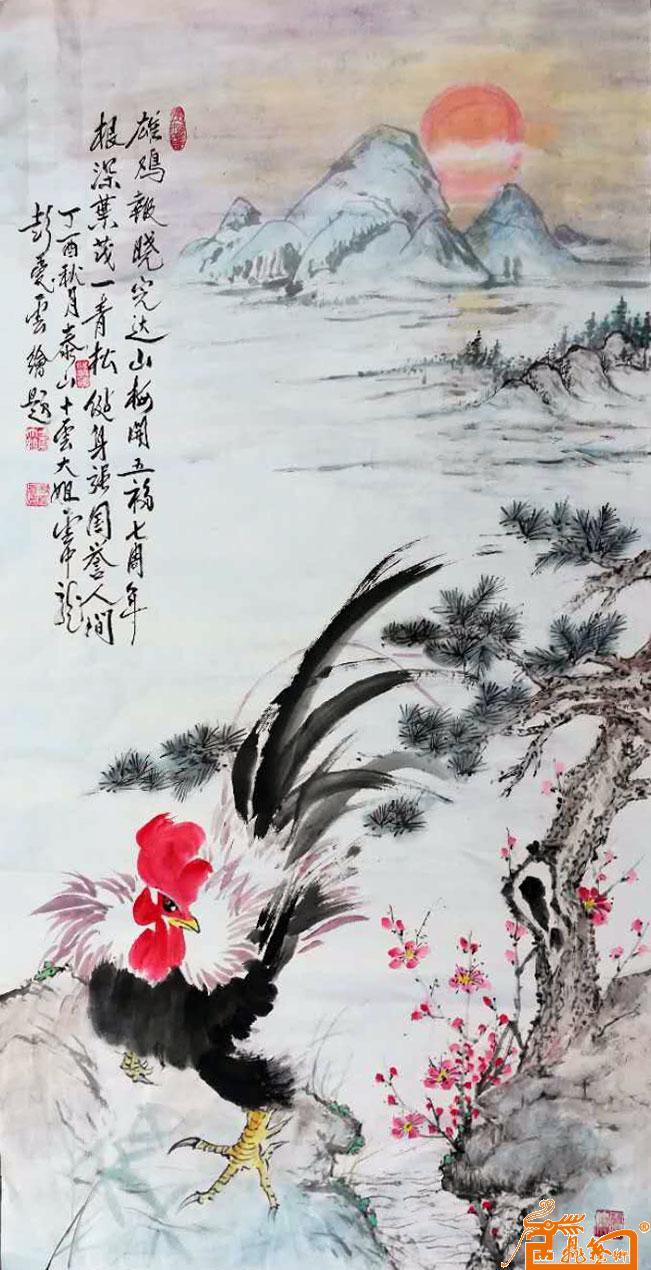 雄鸡報晓完达山梅開五福七周年
根深葉茂一青松健身强国誉人間
丁酉秋月泰山十雲大姐雲中龍
彭爱雲繪題